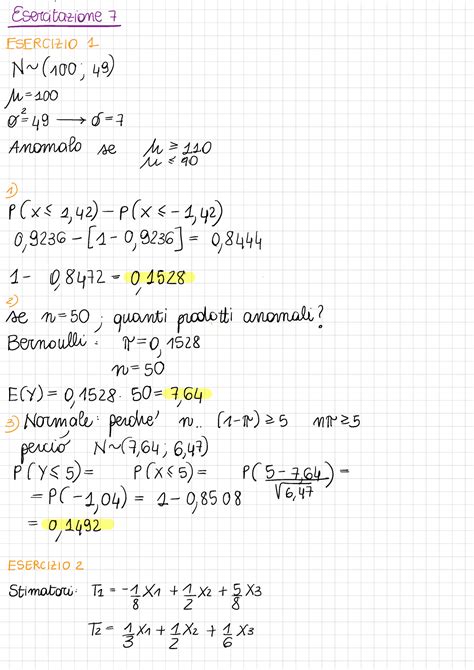 Esercitazione 7
ESERCIZIO 1
N~(100; 49)
μ=100
σ²=49 → σ=7
Anomalo se μ ≥ 110
μ ≤ 90
1)
P(X ≤ 1,42) - P(X ≤ -1,42)
0,9236 - [1 - 0,9236] = 0,8444
1 - 0,8472 = 0,1528
2)
se n=50; quanti prodotti anomali?
Bernoulli: π=0,1528
n=50
E(Y) = 0,1528 · 50 = 7,64
3) Normale: perché n.. (1-π) ≥ 5 nπ ≥ 5
perciò N~(7,64; 6,47)
P(Y ≤ 5) = P(X ≤ 5) = P(5 - 7,64 / √6,47) =
= P(-1,04) = 1 - 0,8508
= 0,1492
ESERCIZIO 2
Stimatori: T1 = -1/8 X1 + 1/2 X2 + 5/8 X3
T2 = 1/3 X1 + 1/2 X2 + 1/6 X3